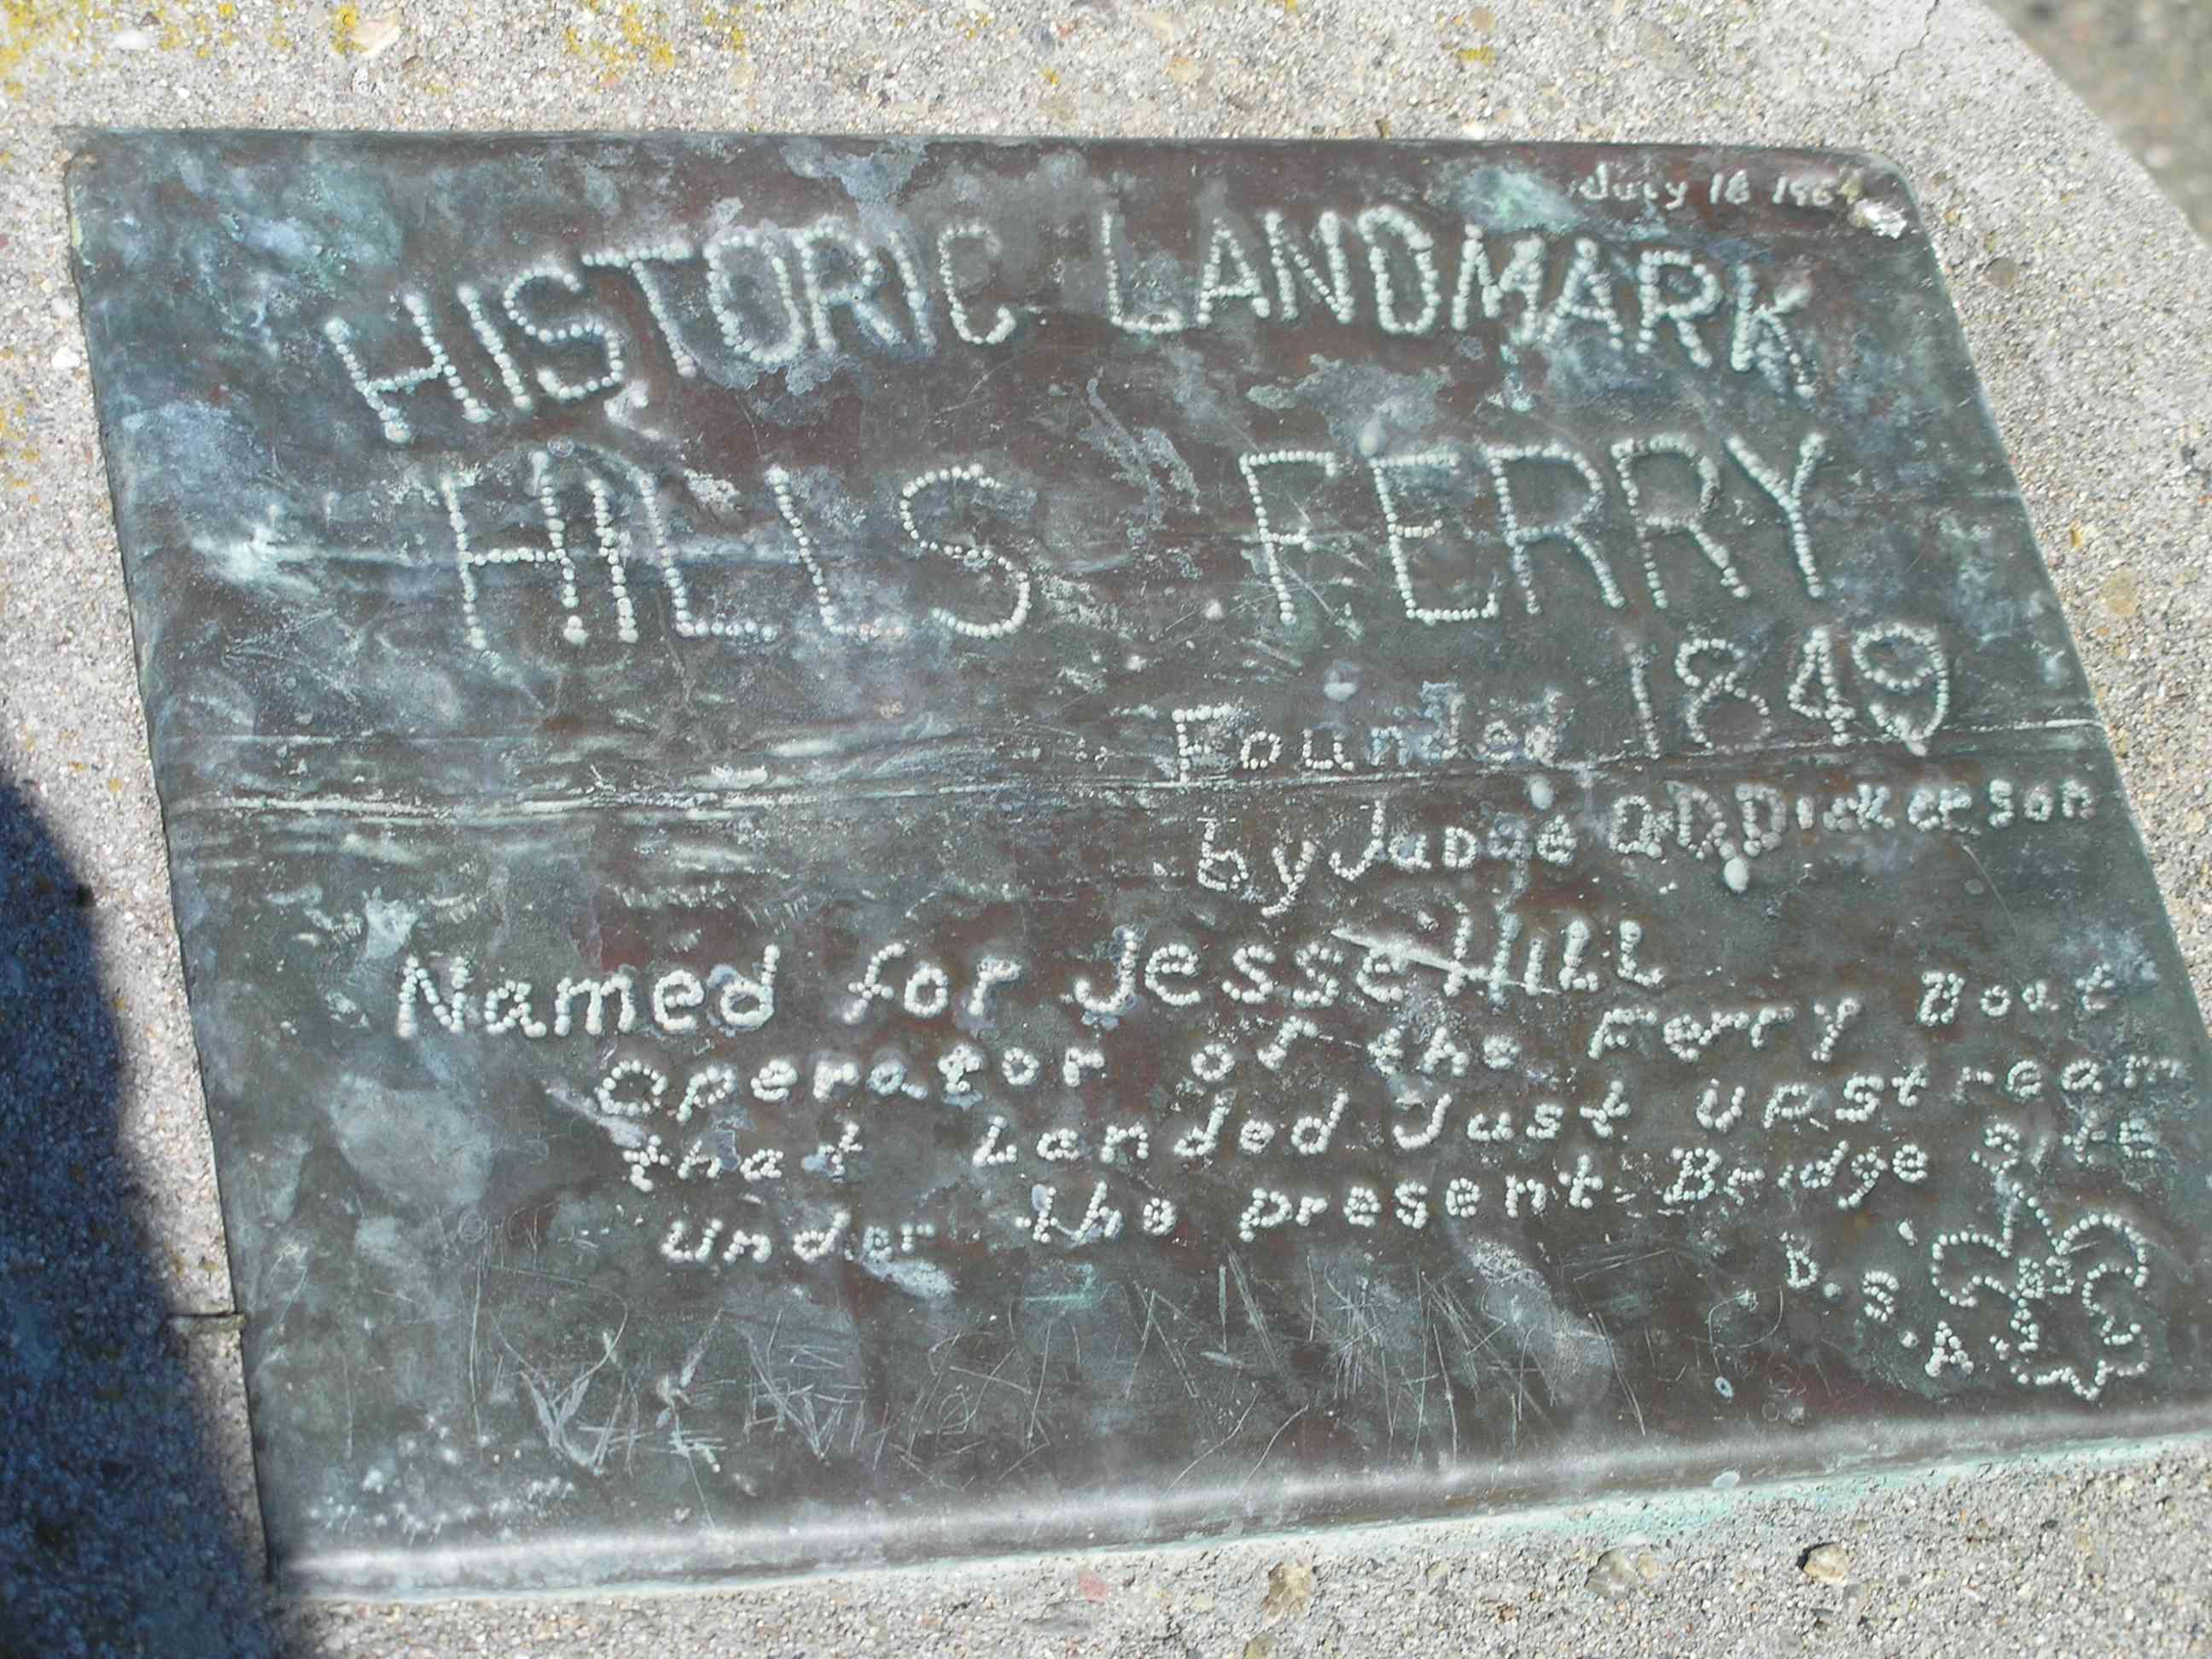 July 18
HISTORIC LANDMARK
HILLS FERRY
Founded 1849
by Judge Dickerson
Named for Jesse HILL
Operator of the Ferry Boat
that Landed Just upstream
under the present Bridge Site
B.S.A